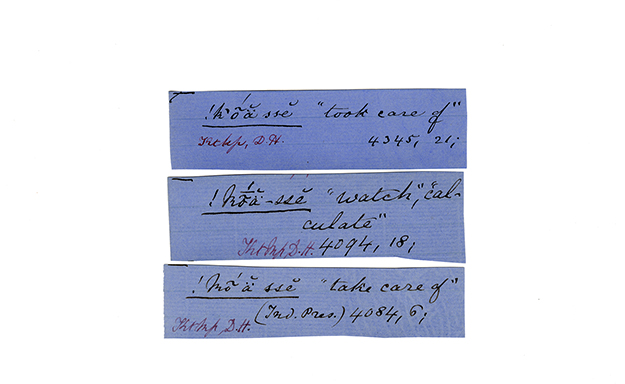 !kṍă ssĕ "took care of"
Ktchp, D.H. 4345, 21;
!kṍă-ssĕ "watch", "cal-
culate"
Ktchp D.H. 4094, 18;
!kóă ssĕ "take care of"
(Ind. Pres.) 4084, 6;
Ktchp, D.H.